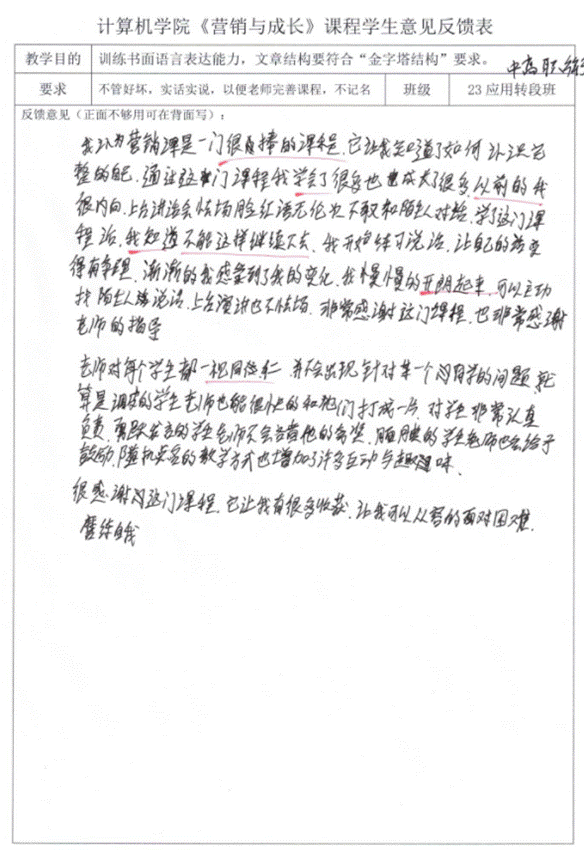 计算机学院《营销与成长》课程学生意见反馈表
教学目的 训练书面语言表达能力，文章结构要符合“金字塔结构”要求。 中高职
要求 不管好坏，实话实说，以便老师完善课程，不记名 班级 23应用转段班
反馈意见（正面不够用可在背面写）：
我认为营销课是一门很棒的课程，它让我知道了如何认识完
整的自己，通过这门课程我学会了很多也成长了很多，以前的我
很内向，上台讲话会怯场脸红语无伦也不敢和陌生人对话，学了这门课
程后，我知道不能这样继续下去，我开始练习说话，让自己的
得有条理，渐渐的我感受到了我的变化，我慢慢的开朗起来，可以主动
找陌生人说话，上台演讲也不怯场，非常感谢这门课程，也非常感谢
老师的指导
老师对每个学生都一视同仁，并不会出现针对某一个同学的问题，就
算是调皮的学生老师也能很快的和他们打成一片，对学生非常认真
负责，踊跃发言的学生老师不会吝啬他的夸奖，腼腆的学生老师也会给予
鼓励，随机点名的教学方式也增加了许多互动与趣味。
很感谢这门课程，它让我有很多收获，让我可以从容的面对困难，
磨练自我